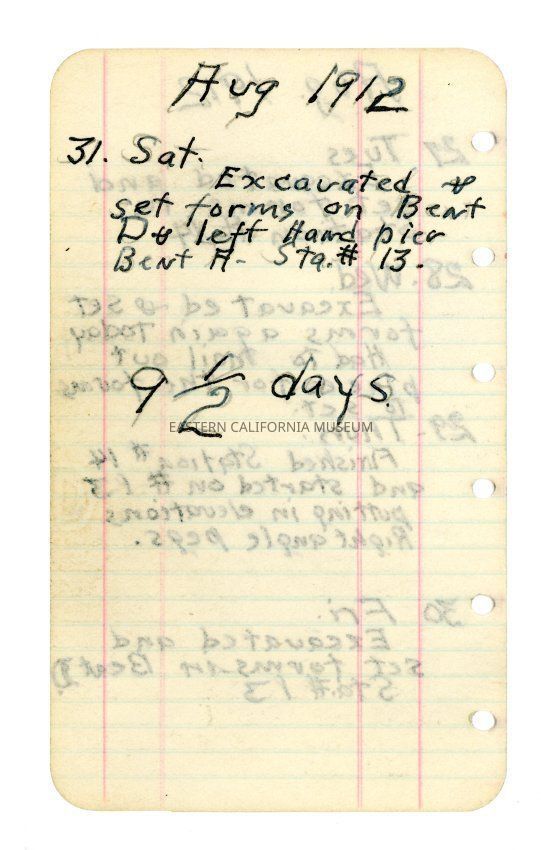 Aug 1912
31. Sat.
Excavated &
set forms on Bent
D & left Hand pier
Bent A- Sta.# 13.
9 1/2 days.
EASTERN CALIFORNIA MUSEUM